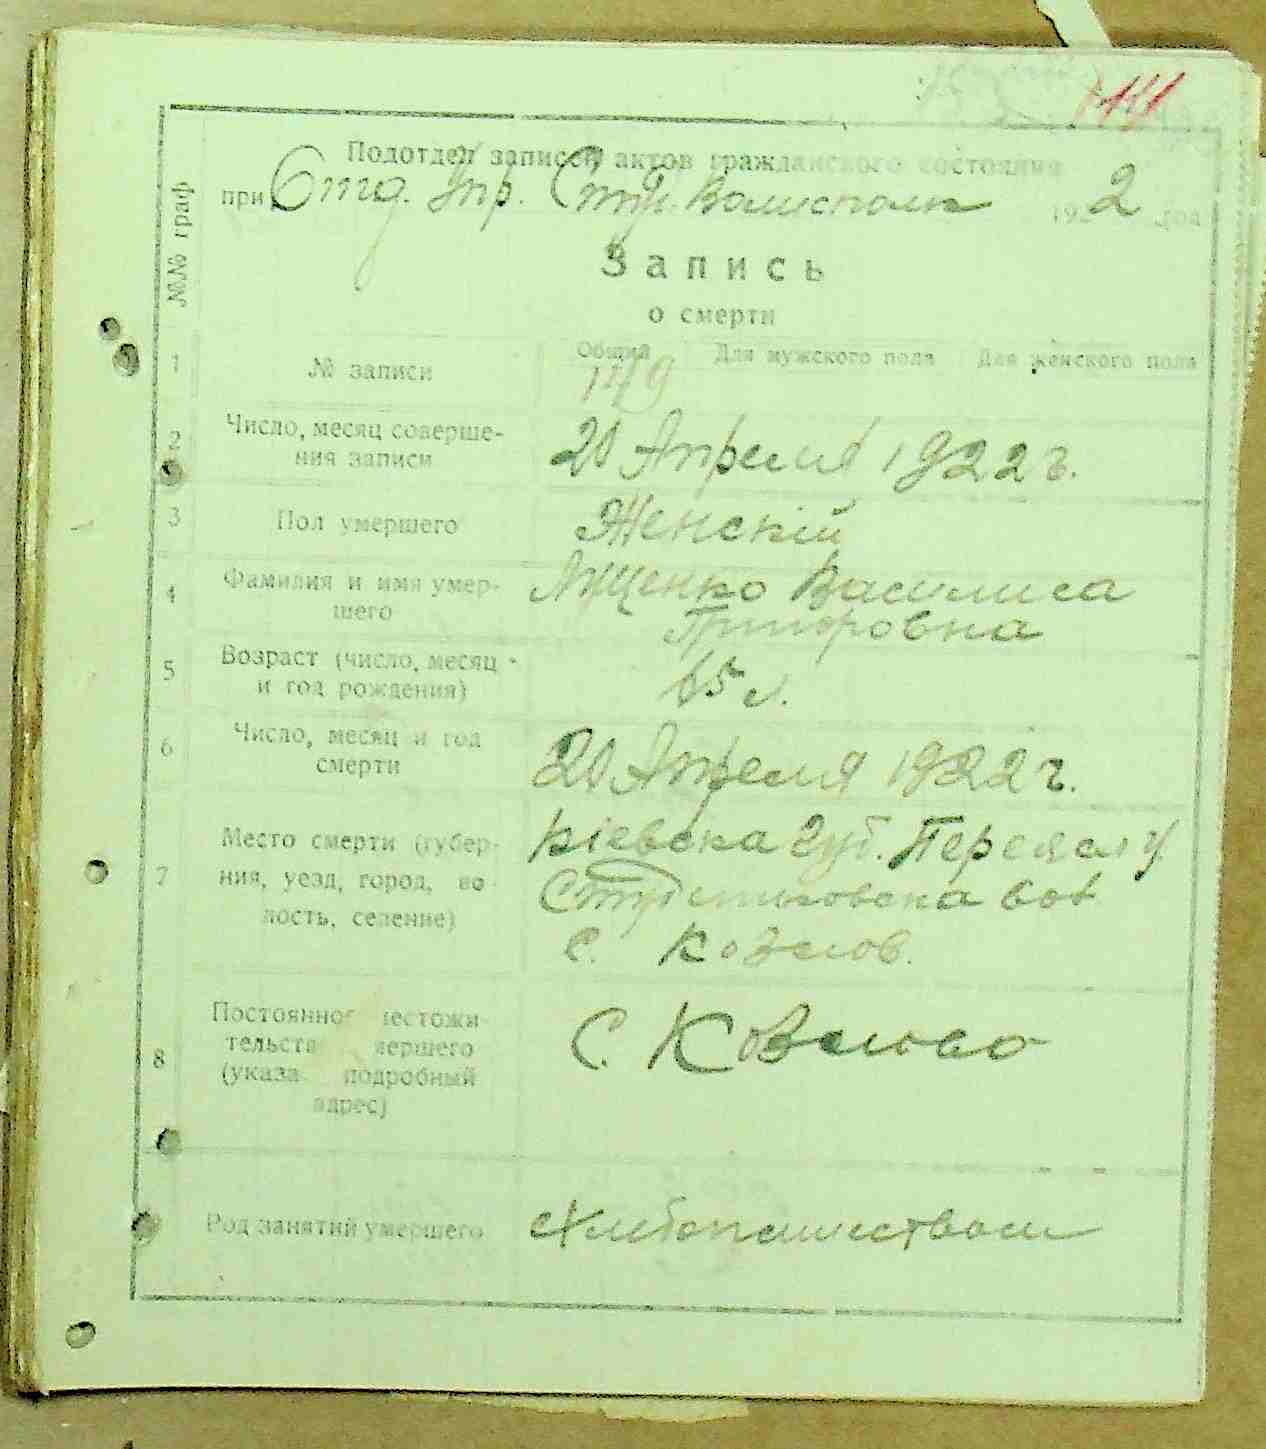 141
Подотдел записей актов гражданского состояния
при Отд. Упр. Студ. Волисполк 1922 год
Запись
о смерти
№№ граф
1 № записи Общий 119 Для мужского пола Для женского пола
2 Число, месяц соверше-
ния записи
20 Апреля 1922 г.
3 Пол умершего Женскій
4 Фамилия и имя умер-
шего
Лященко Василиса
Григоровна
5 Возраст (число, месяц
и год рождения)
65 л.
6 Число, месяц и год
смерти
20 Апреля 1922 г.
7 Место смерти (губер-
ния, уезд, город, во-
лость, селение)
Кіевска губ. Переясл у
Студениковска вол
С. Козлов.
8 Постоянное местожи-
тельств умершего
(указа подробный
адрес)
С. Козлово
Род занятий умершего Хлебопашеством